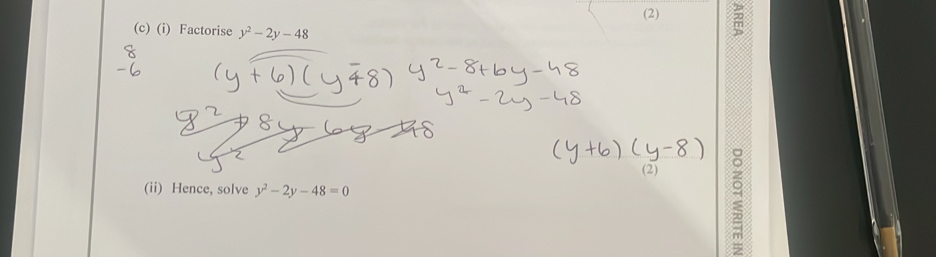 (2)
(c) (i) Factorise y² – 2y – 48
8
-6
(y + 6)(y - 8) y² - 8 + 6y - 48
y² - 2y - 48
y² + 8y - 6y - 48
y²
(y + 6) (y - 8)
(2)
(ii) Hence, solve y² – 2y – 48 = 0
AREA
DO NOT WRITE IN